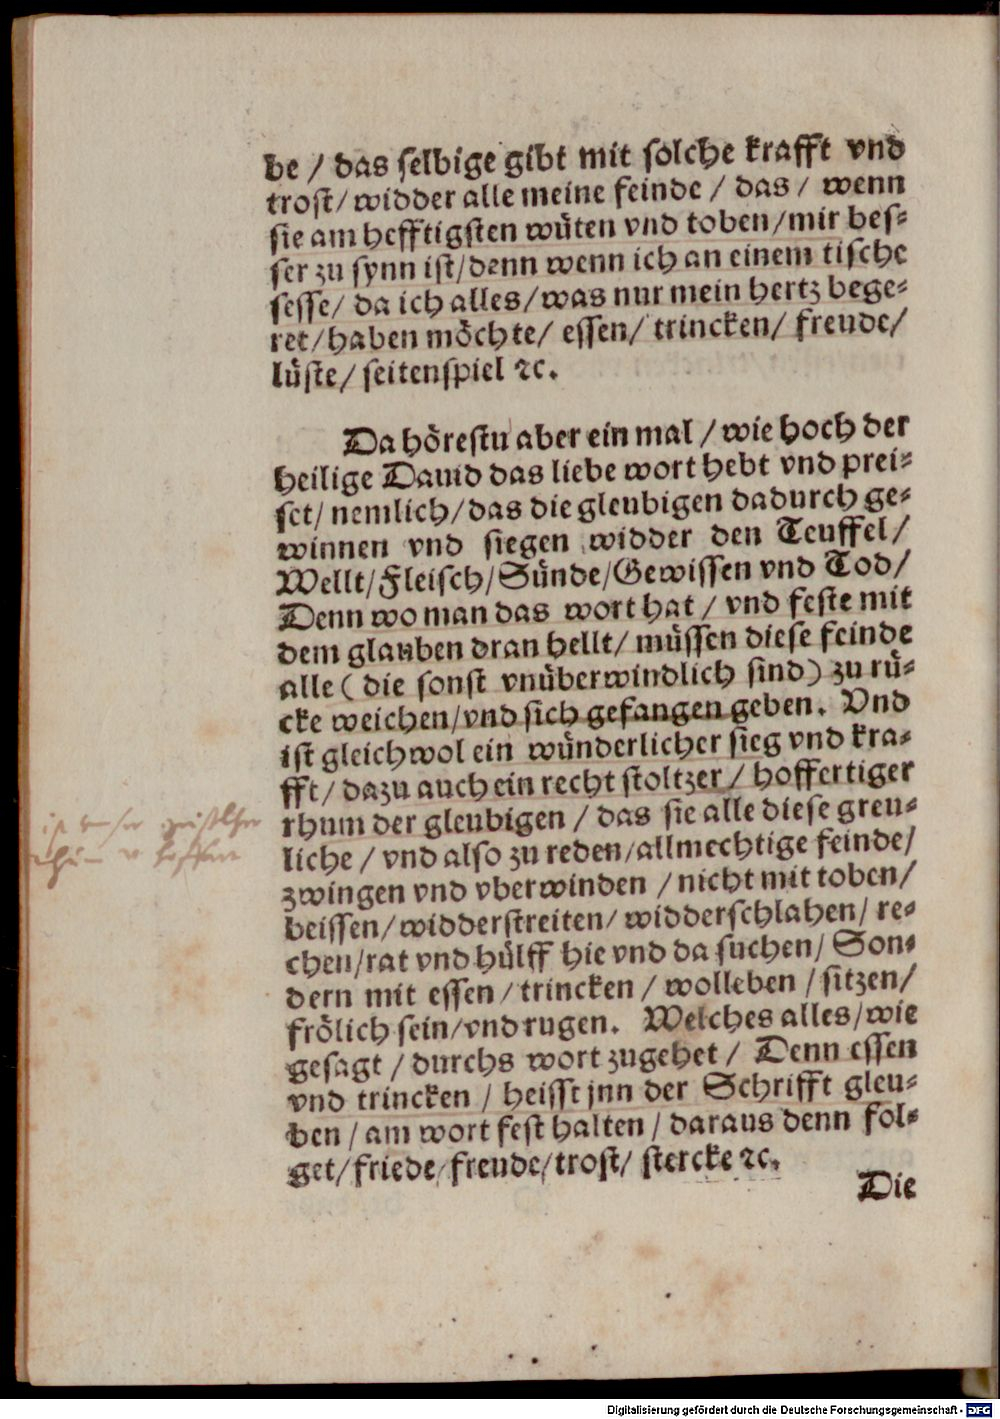 be / das ſelbige gibt mit ſolche krafft vnd
troſt/ widder alle meine feinde / das / wenn
ſie am hefftigſten wüten vnd toben/mir beſ⸗
ſer zu ſynn iſt/denn wenn ich an einem tiſche
ſeſſe/ da ich alles/was nur mein hertz bege⸗
ret/haben möchte/ eſſen/ trincken/ freude/
lüſte/ ſeitenſpiel ꝛc.
Da höreſtu aber ein mal / wie hoch der
heilige Dauid das liebe wort hebt vnd prei⸗
ſet/ nemlich/das die gleubigen dadurch ge⸗
winnen vnd ſiegen widder den Teuffel/
Wellt/Fleiſch/Sünde/Gewiſſen vnd Tod/
Denn wo man das wort hat / vnd feſte mit
dem glauben dran hellt/ müſſen dieſe feinde
alle ( die ſonſt vnüberwindlich ſind) zu rü⸗
cke weichen/vnd ſich gefangen geben. Vnd
iſt gleichwol ein wünderlicher ſieg vnd kra⸗
fft/ dazu auch ein recht ſtoltzer / hoffertiger
rhum der gleubigen / das ſie alle dieſe greu⸗
liche / vnd alſo zu reden/allmechtige feinde/
zwingen vnd vberwinden / nicht mit toben/
beiſſen/widderſtreiten/ widderſchlahen/ re⸗
chen/rat vnd hülff hie vnd da ſuchen/ Son⸗
dern mit eſſen / trincken / wolleben / ſitzen/
frölich ſein/vnd rugen. Welches alles/wie
geſagt / durchs wort zugehet / Denn eſſen
vnd trincken / heiſſt jnn der Schrifft gleu⸗
ben / am wort feſt halten / daraus denn fol⸗
get/friede/freude/troſt/ ſtercke ꝛc.
Die
Digitalisierung gefördert durch die Deutsche Forschungsgemeinschaft - DFG